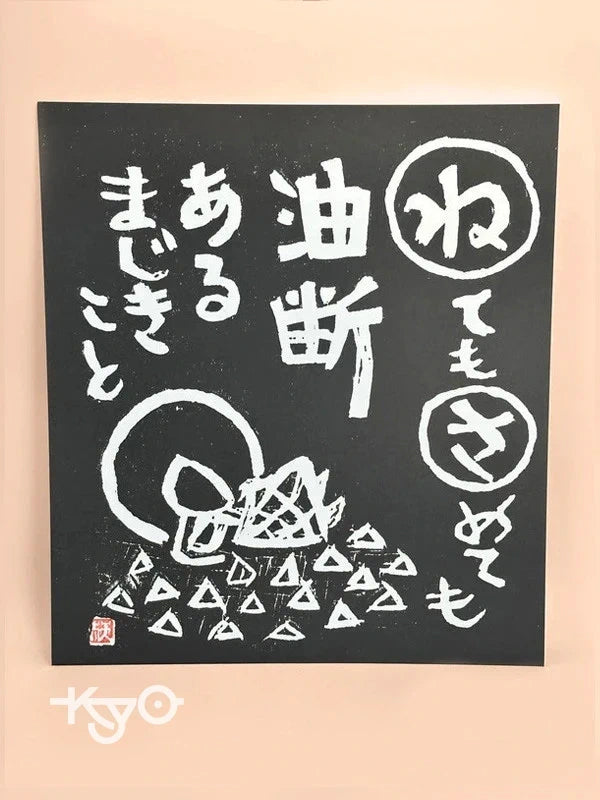 ねてもさめても
油断
ある
まじき
こと
KYO